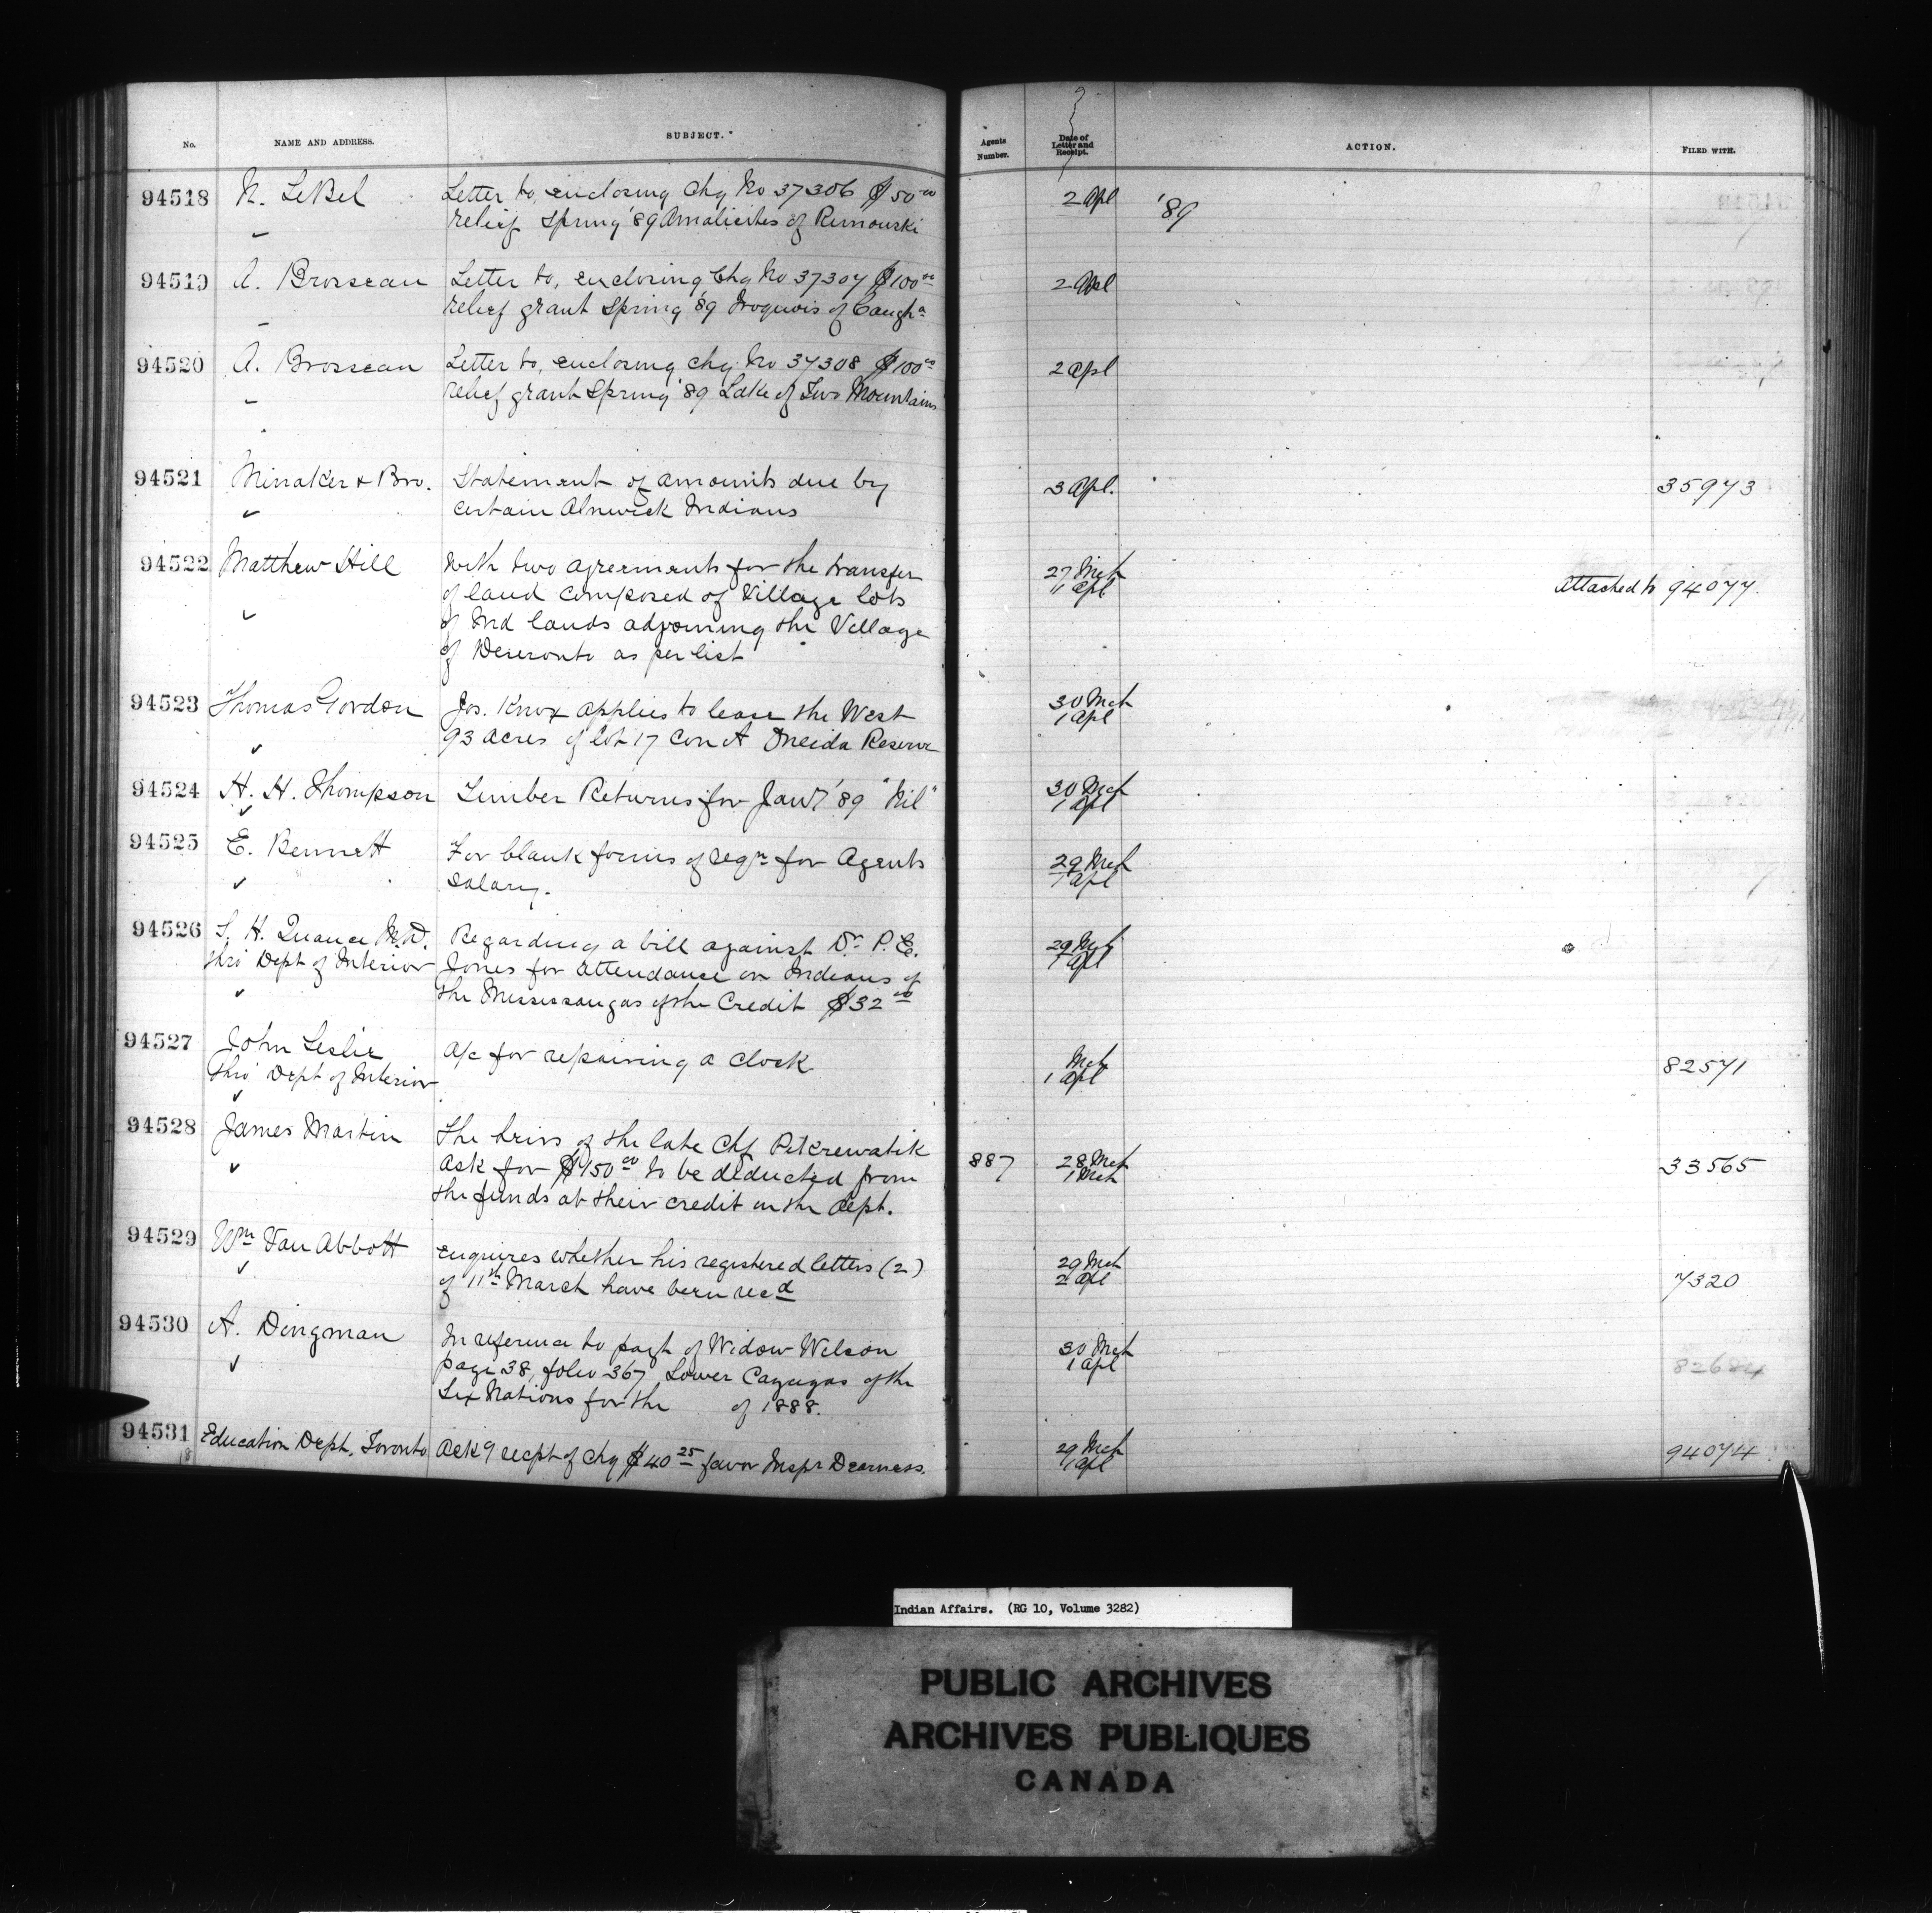 No.
NAME AND ADDRESS.
SUBJECT.
Agents Number.
Date of Letter and Receipt.
ACTION.
FILED WITH.
94518 N. LeBel Letter to, enclosing Chq No 37306 $50.00 2 Apl '89
relief Spring '89 Amalicites of Rimouski
94519 A. Brosseau Letter to, enclosing Chq No 37307 $100.00 2 Apl
relief grant Spring '89 Iroquois of Caugha
94520 A. Brosseau Letter to, enclosing chq No 37308 $100.00 2 Apl
relief grant Spring '89 Lake of Two Mountains
94521 Minaker & Bro. Statement of amounts due by 3 Apl. 35973
certain Alnwick Indians
94522 Matthew Hill With two agreements for the transfer 27 Mch
of land composed of Village lots 11 Apl Attached to 94077.
of Ind lands adjoining the Village
of Deseronto as per list
94523 Thomas Gordon Jos. Knox applies to lease the West 30 Mch
93 acres of lot 17 Con A Oneida Reserve 1 Apl
94524 H. H. Thompson Timber Returns for Jany '89 "Nil" 30 Mch
1 Apl
94525 E. Bennett For blank forms of reqn for Agents 29 Mch
Salary. 1 Apl
94526 S. H. Quance M.D. Regarding a bill against Dr. P. E. 29 Mch
thro' Dept of Interior Jones for attendance on Indians of 1 Apl
the Mississaugas of the Credit $32.00
94527 John Leslie A/c for repairing a clock Mch 82571
Thro' Dept of Interior 1 Apl
94528 James Martin The heirs of the late Chf
ask for $150.00 to be deducted from 887 28 Mch 33565
the funds at their credit in the Dept. 1 Mch
94529 Wm Van Abbott enquires whether his registered letters (2) 29 Mch
of 11th March have been recd 2 Apl 7320
94530 A. Dingman In reference to payt of Widow Wilson 30 Mch
page 38, folio 367 Lower Cayugas of the 1 Apl 82684
Six Nations for the of 1888.
94531 Education Dept, Toronto Ack9 recpt of chq $40.25 favor Inspr Dearness. 29 Mch 94074
1 Apl
Indian Affairs. (RG 10, Volume 3282)
PUBLIC ARCHIVES
ARCHIVES PUBLIQUES
CANADA